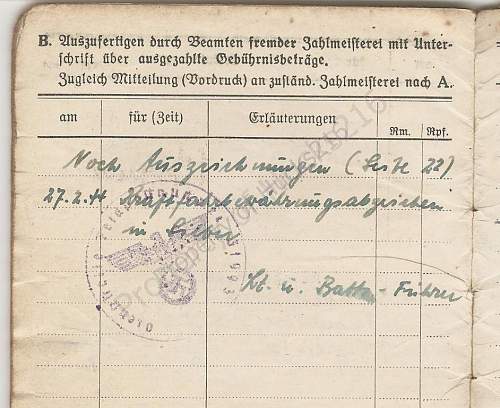 B. Auszufertigen durch Beamten fremder Zahlmeisterei mit Unter-
schrift über ausgezahlte Gebührnisbeträge.
Zugleich Mitteilung (Vordruck) an zuständ. Zahlmeisterei nach A.
am für (Zeit) Erläuterungen Rm. Rpf.
Noch Auszeichnungen (Seite 22)
27.2.44 Kraftfahrbewährungsabzeichen
in Silber
Lt. u. Battr.-Führer